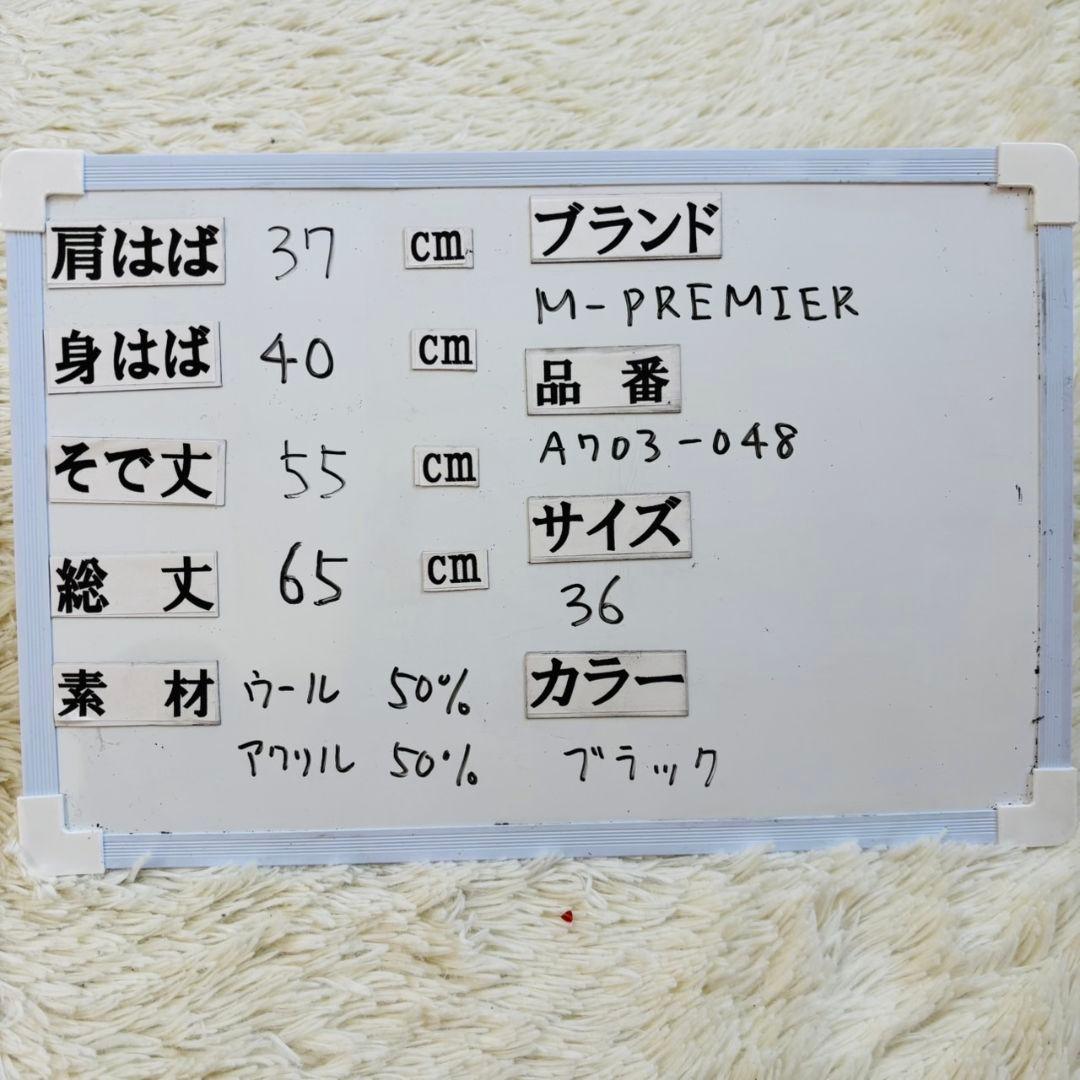 肩はば 37 cm
身はば 40 cm
そで丈 55 cm
総丈 65 cm
素材 ウール 50%
アクリル 50%
ブランド
M-PREMIER
品番
A703-048
サイズ
36
カラー
ブラック